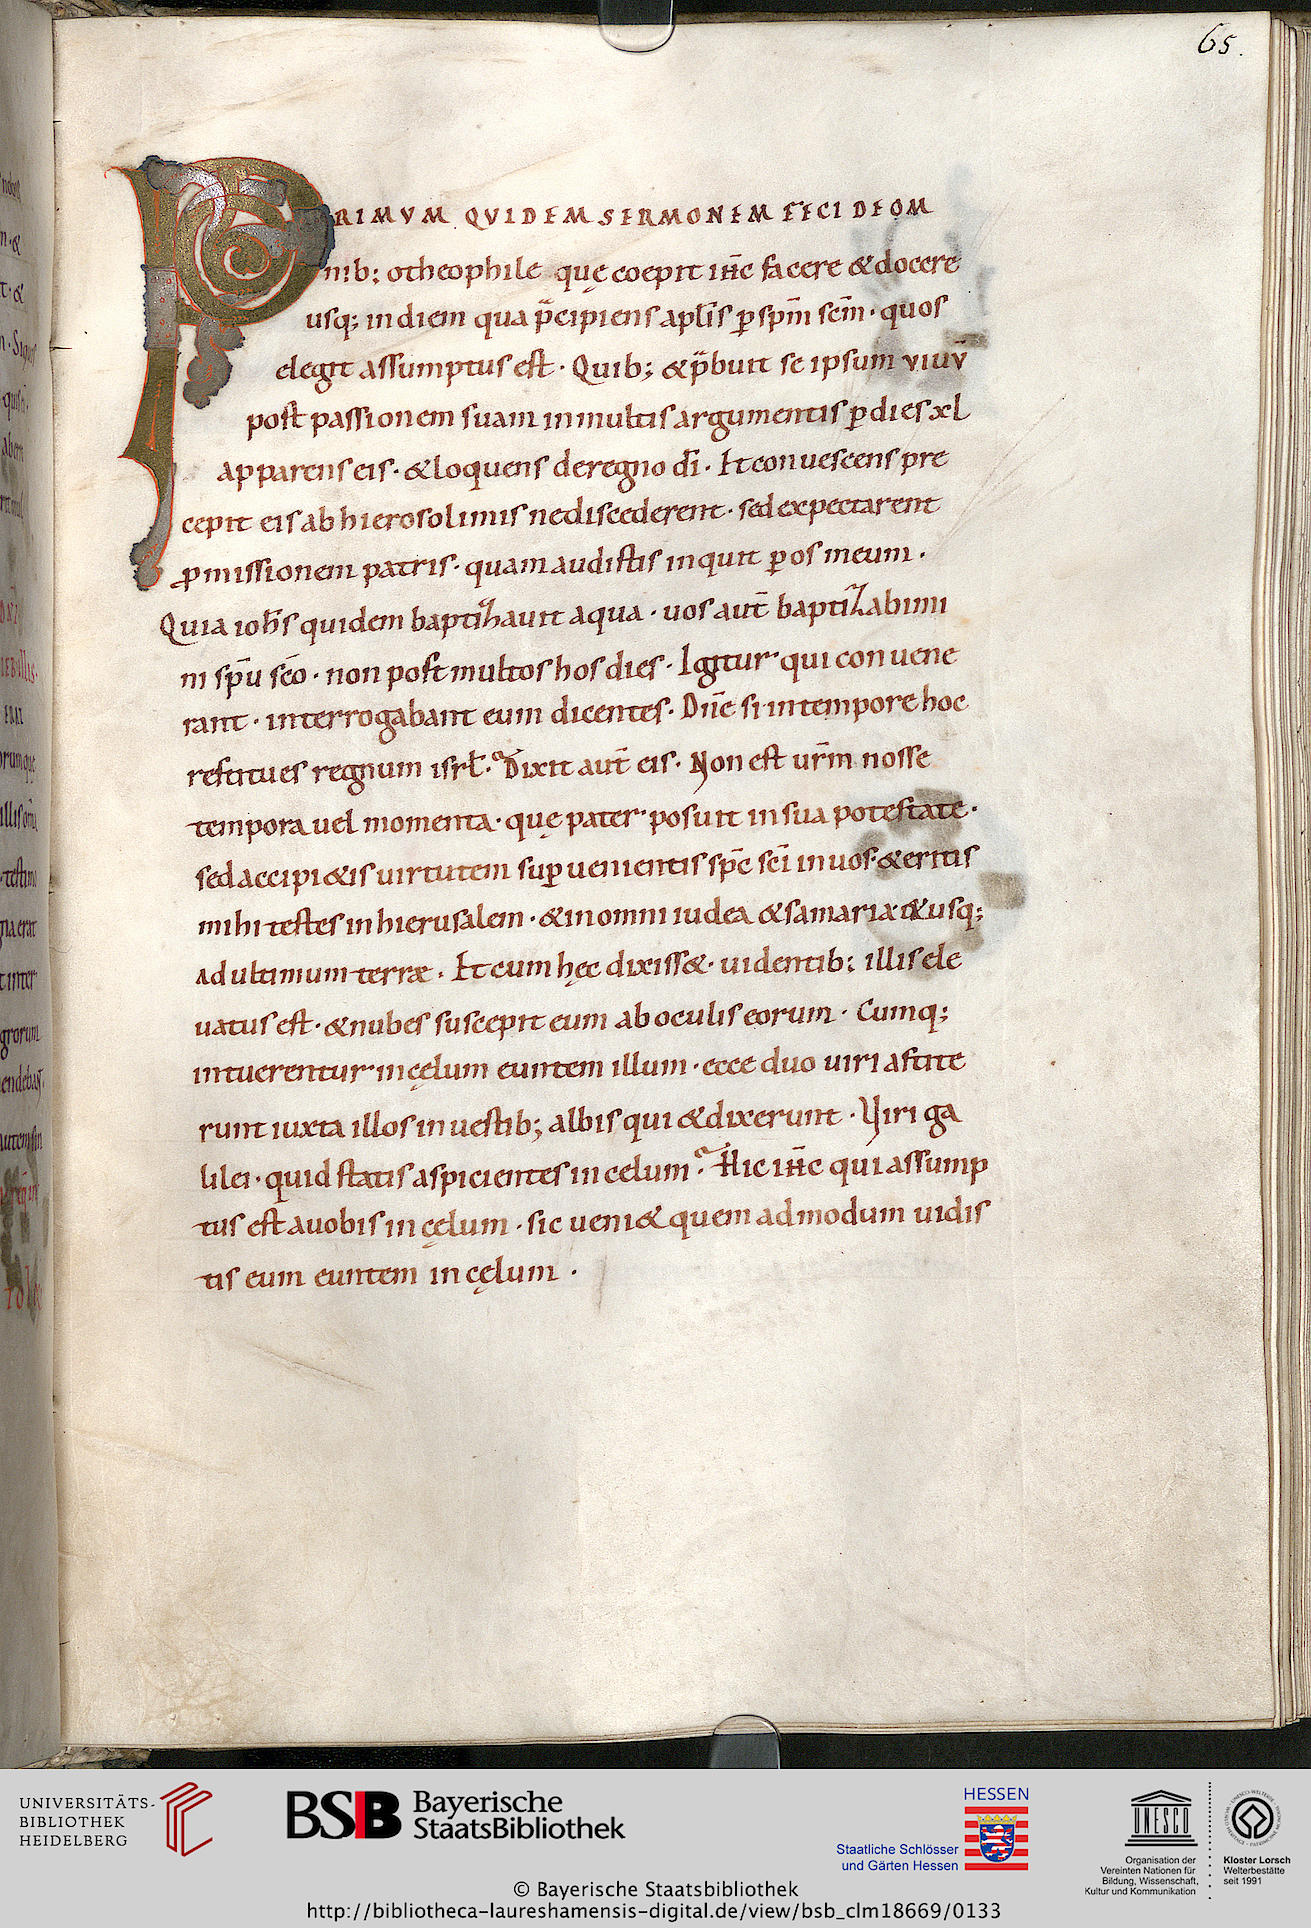 65.
PRIMVM QVIDEM SERMONEM FECI DE OM
nib; otheophile que coepit ih̅c facere & docere
usq; in diem qua p̅cipiens apl̅is p spm̅ scm̅ · quos
elegit assumptus est · Quib; & p̅buit se ipsum viuv̅
post passionem suam in multis argumentis p dies xl
apparens eis · & loquens de regno di̅ · Et conuescens pre
cepit eis ab hierosolimis ne discederent · sed expectarent
pmissionem patris · quam audistis inquit p os meum ·
Quia ioh̅s quidem baptizauit aqua · uos aut̅ baptizabimi
ni spu̅ sco̅ · non post multos hos dies · Igitur qui conuene
rant · interrogabant eum dicentes · Dn̅e si in tempore hoc
restitues regnum isrl̅ · Dixit aut̅ eis · Non est ur̅m nosse
tempora uel momenta · quę pater posuit in sua potestate ·
sed accipi&is uirtutem sup uenientis spc̅ sci̅ in uos · & eritis
mihi testes in hierusalem · & in omni iudea & samaria & usq;
ad ultimum terræ · Et cum hęc dixiss& · uidentib; illis ele
uatus est · & nubes suscepit eum ab oculis eorum · Cumq;
intuerentur in cęlum euntem illum · ecce duo uiri astite
runt iuxta illos in uestib; albis qui & dixerunt · Viri ga
lilei · quid statis aspicientes in celum? Hic ih̅c qui assump
tus est a uobis in cęlum · sic ueni& quem ad modum uidis
tis eum euntem in cęlum ·
UNIVERSITÄTS-
BIBLIOTHEK
HEIDELBERG
BSB Bayerische
StaatsBibliothek
HESSEN
Staatliche Schlösser
und Gärten Hessen
UNESCO
Organisation der
Vereinten Nationen für
Bildung, Wissenschaft,
Kultur und Kommunikation
Kloster Lorsch
Welterbestätte
seit 1991
© Bayerische Staatsbibliothek
http://bibliotheca-laureshamensis-digital.de/view/bsb_clm18669/0133